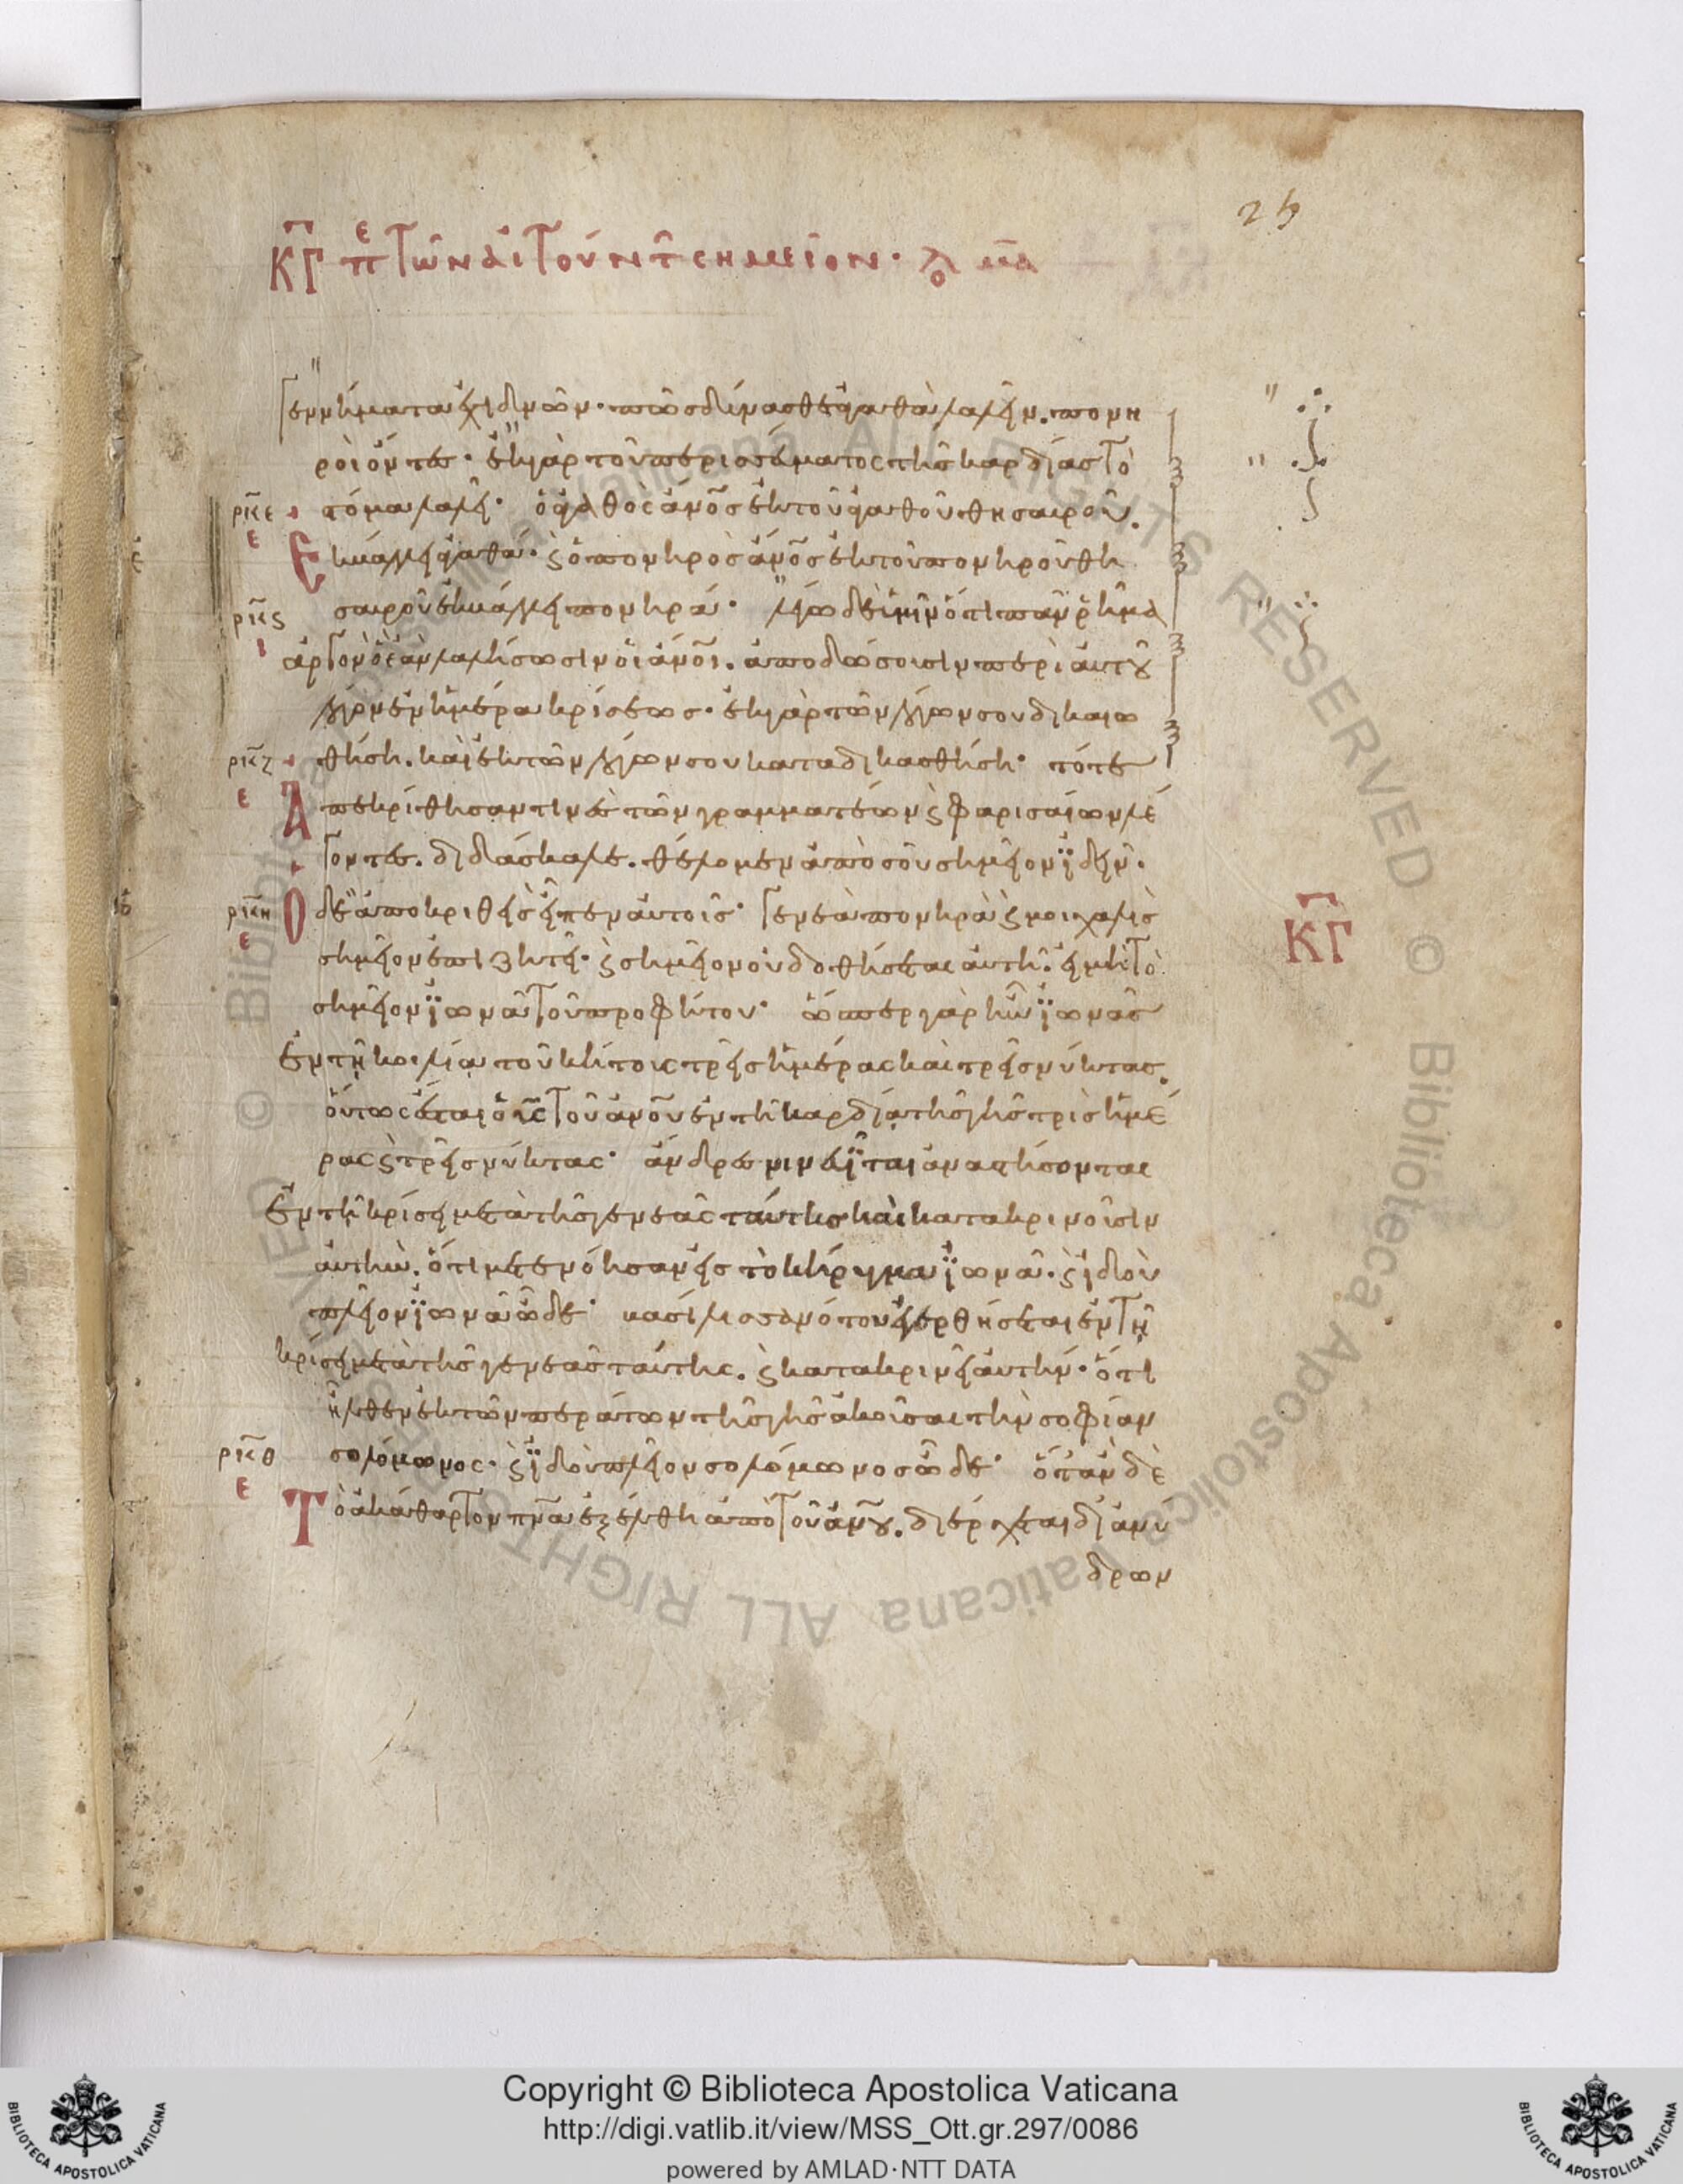 25
ΚΓ πε τῶν αἰτούντ σημεῖον· λο μα
γεννήματα ἐχιδνῶν· πῶς δύνασθε ἀγαθὰ λαλεῖν. πονη
ροὶ ὄντες· ἐκ γὰρ τοῦ περισσεύματος τῆς καρδίας τὸ
στόμα λαλεῖ· ὁ ἀγαθὸς ἄνος ἐκ τοῦ ἀγαθοῦ θησαυροῦ.
ρκε
ε
ἐκβάλλει ἀγαθά· ϗ ὁ πονηρὸς ἄνος ἐκ τοῦ πονηροῦ θη
σαυροῦ ἐκβάλλει πονηρά· λέγω δὲ ὑμῖν ὅτι πᾶν ῥῆμα
ρκς
ι
ἀργὸν ὃ ἐὰν λαλήσωσιν οἱ ἄνοι. ἀποδώσουσιν περὶ αὐτοῦ
λόγον ἐν ἡμέρα κρίσεως· ἐκ γὰρ τῶν λόγων σου δικαιω
θήση. καὶ ἐκ τῶν λόγων σου καταδικασθήση· τότε
ρκζ
ε
ἀπεκρίθησαν τινὲς τῶν γραμματέων ϗ φαρισαίων λέ
γοντες. διδάσκαλε. θέλομεν ἀπὸ σοῦ σημεῖον ἰδεῖν.
ὁ δὲ ἀποκριθεὶς εἶπεν αὐτοῖς· γενεὰ πονηρὰ ϗ μοιχαλὶς
ρκη
ε
ΚΓ
σημεῖον ἐπιζητεῖ· ϗ σημεῖον οὐ δοθήσεται αὐτῆ. εἰ μὴ τὸ
σημεῖον ἰωνᾶ τοῦ προφήτου· ὥσπερ γὰρ ἦν ἰωνᾶς
ἐν τῆ κοιλία τοῦ κήτους τρεῖς ἡμέρας καὶ τρεῖς νύκτας.
οὕτως ἔσται ὁ υς τοῦ ἀνου ἐν τῆ καρδία τῆς γῆς τρεῖς ἡμέ
ρας ϗ τρεῖς νύκτας· ἄνδρες νινευῖται ἀναστήσονται
ἐν τῆ κρίσει μετὰ τῆς γενεᾶς ταύτης καὶ κατακρινοῦσιν
αὐτήν. ὅτι μετενόησαν εἰς τὸ κήρυγμα ἰωνᾶ· ϗ ἰδοὺ
πλεῖον ἰωνᾶ ὧδε· βασίλισσα νότου ἐγερθήσεται ἐν τῆ
κρίσει μετὰ τῆς γενεᾶς ταύτης. ϗ κατακρινεῖ αὐτήν· ὅτι
ἦλθεν ἐκ τῶν περάτων τῆς γῆς ἀκοῦσαι τὴν σοφίαν
σολόμωνος· ϗ ἰδοὺ πλεῖον σολόμωνος ὧδε· ὅταν δὲ
ρκθ
ε
τὸ ἀκάθαρτον πνα ἐξέλθη ἀπὸ τοῦ ἀνου. διέρχεται δι᾽ ἀνύ
δρων
Copyright © Biblioteca Apostolica Vaticana
http://digi.vatlib.it/view/MSS_Ott.gr.297/0086
powered by AMLAD·NTT DATA
BIBLIOTECA APOSTOLICA VATICANA
BIBLIOTECA APOSTOLICA VATICANA